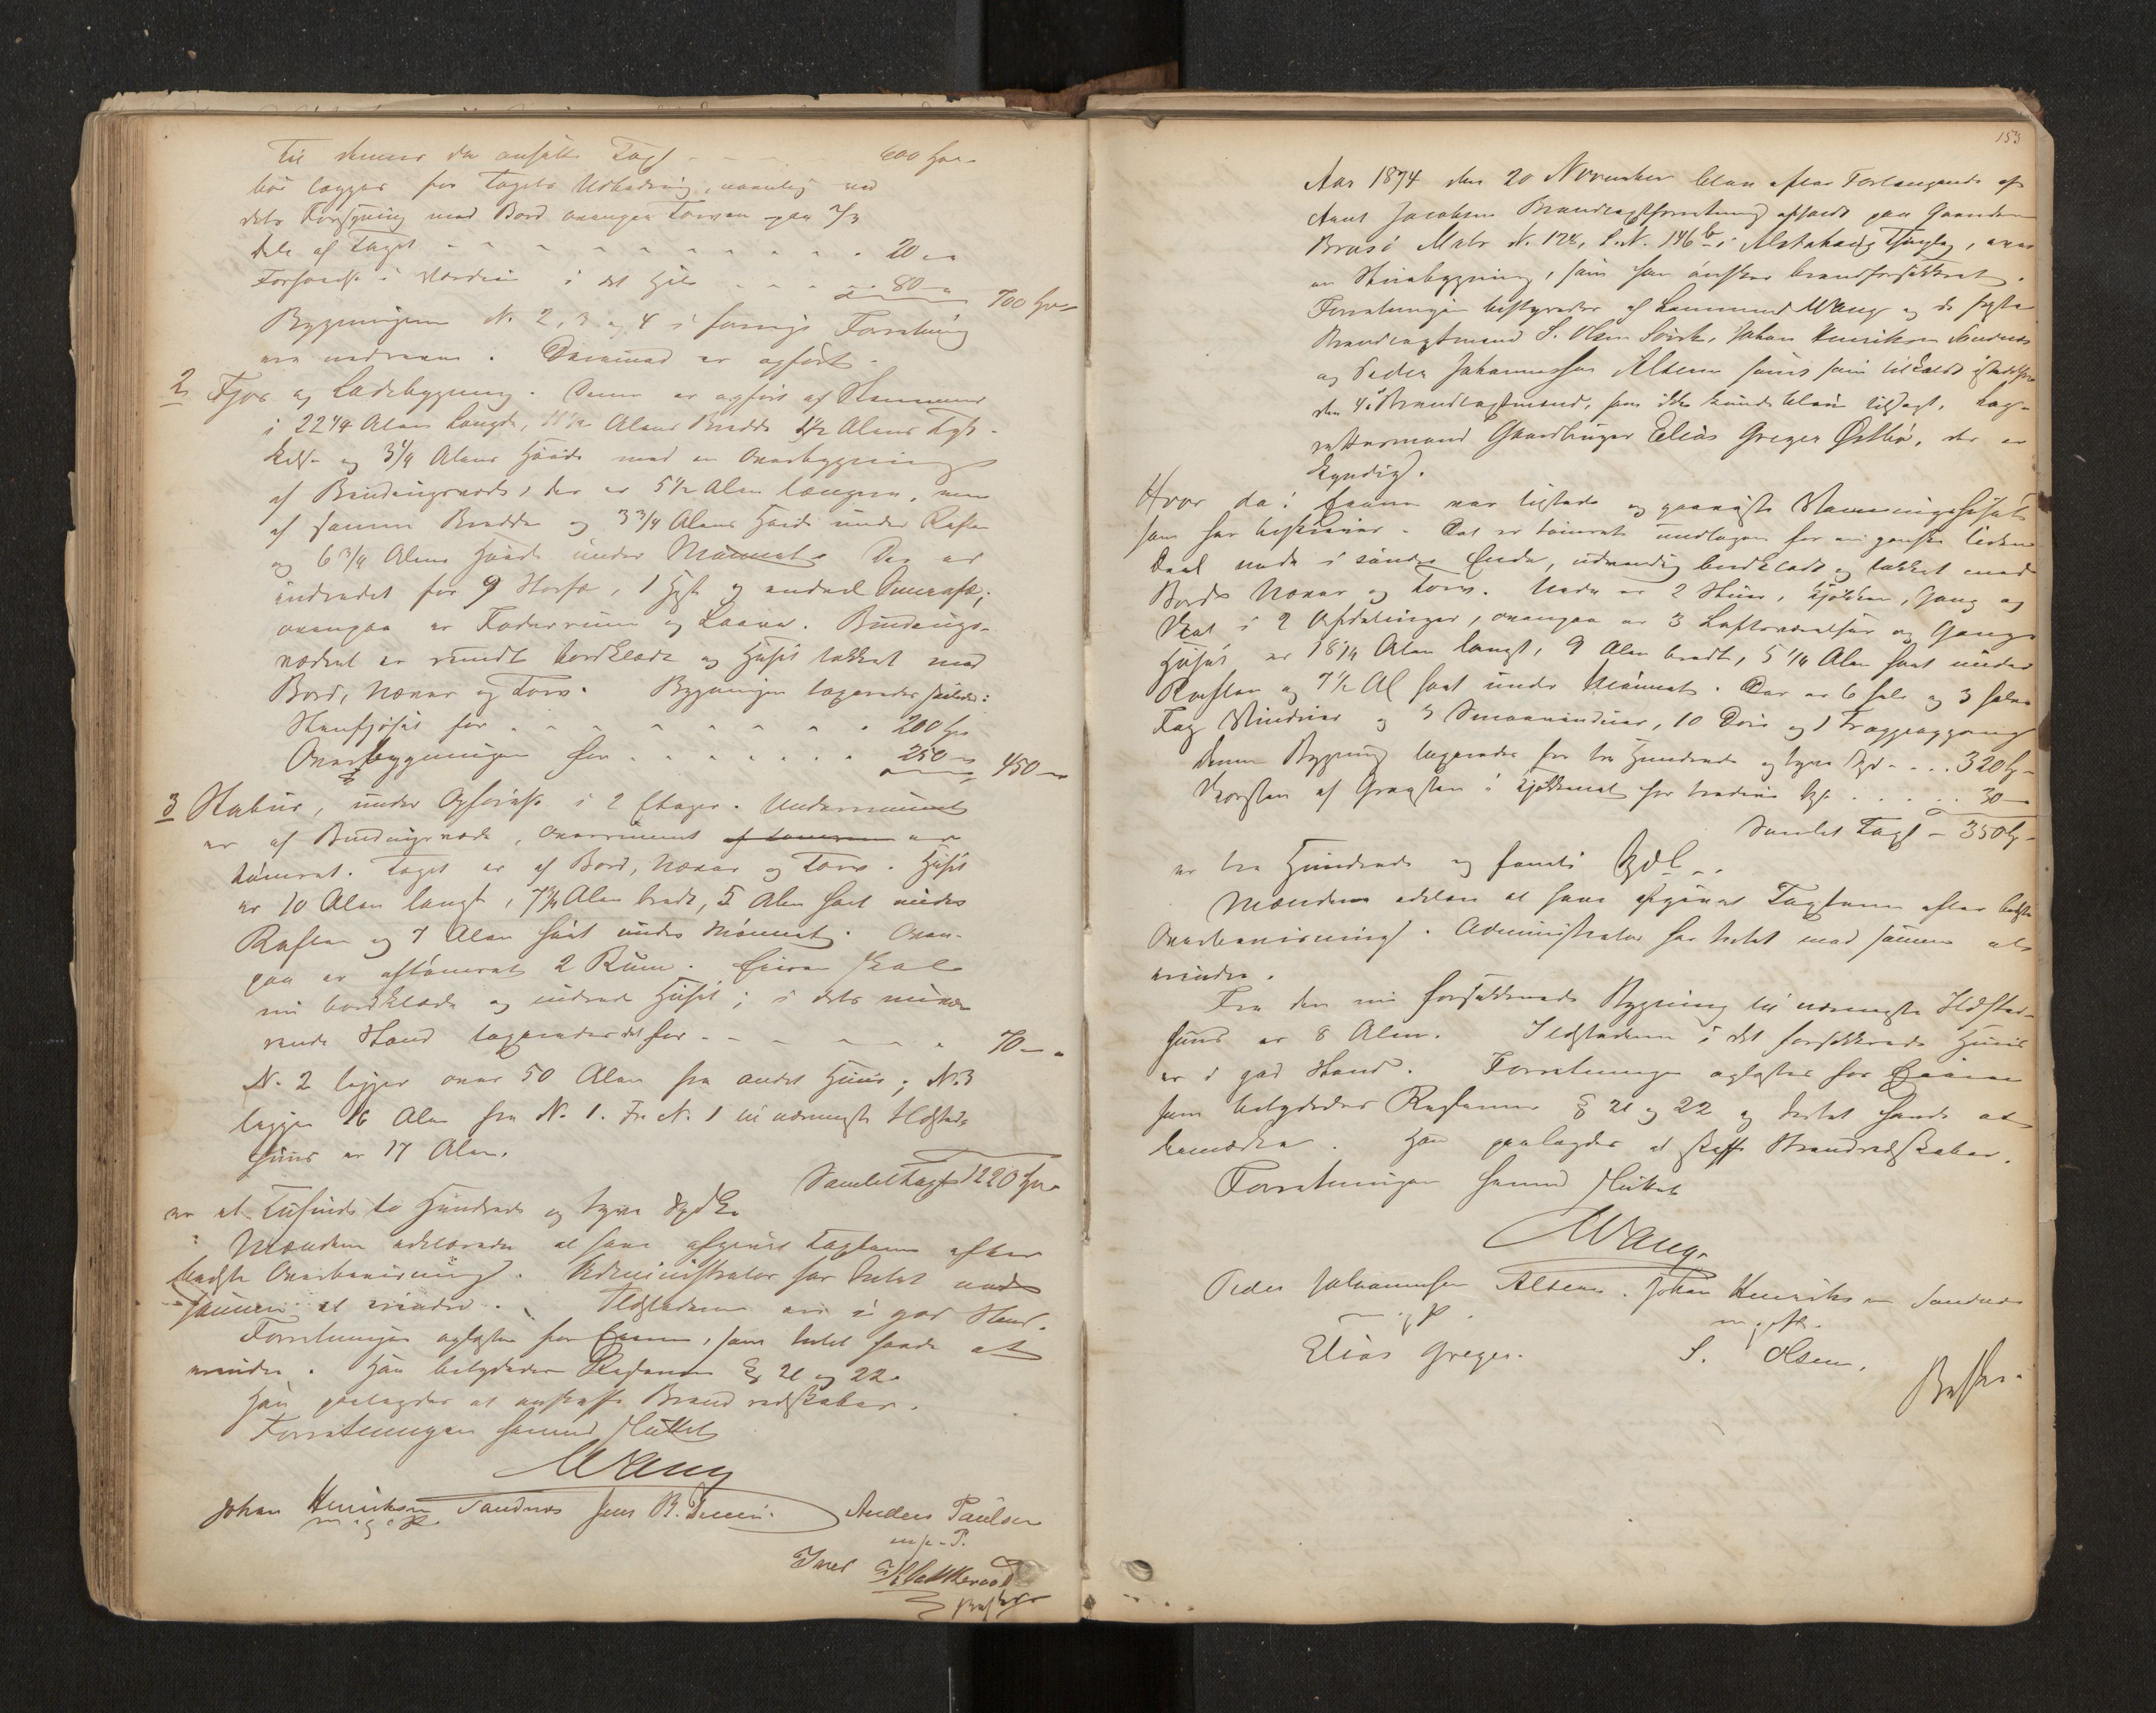 Til denne da ansatte Taxt - - - 600 Spd.
bør lægges for Tagets Udbedring, nemlig ved
dets Forsyning med Bord ovenpaa Torven paa 2/3
Dele af Taget - - - - 20 -
Forhøielse i Værdien i det Hele - - - 80 - 700 Spd.
Bygningerne No 2, 3 og 4 i forrige Forretning
ere nedrevne. Derimod er opført.
2 Fjøs og Ladebygning. Denne er opført af Stenmuur
i 22 1/4 Alens Længde, 11 1/2 Alens Bredde 1 1/2 Alens Tyk-
kelse og 3 1/4 Alens Høide med en Overbygning
af Bindingsværk, der er 5 1/2 Alen længere, men
af samme Bredde og 3 3/4 Alens Høide under Raften
og 6 3/4 Alens Høide under Mønnet. Der er
indredet for 9 Storfæ, 1 Hest og endeel Smaafæ;
ovenpaa er Foderrum og Laave. Bindings-
værket er rundt bordklædt og Huset tækket med
Bord, Næver og Torv. Bygningen taxeredes saaledes:
Stenfjøset for - - - - 200 Spd
Overbygningen for - - - - 250 - 450 -
3 Stabur, under Opførelse i 2 Etager. Underrummet
er af Bindingsværk, Overrummet af tømmer er
tømret. Taget er af Bord, Næver og Torv. Huset
er 10 Alen langt, 7 3/4 Alen bredt, 5 Alen høit under
Raften og 7 Alen høit under Mønnet. Oven-
paa er aftømret 2 Rum. Eieren skal
nu bordklæde og indrede Huset; i dets nuvæ-
rende Stand taxeredes det for - - - - 70 -
No 2 ligger over 50 Alen fra andet Huus; No 3
ligger 16 Alen fra No 1. Fra No 1 til nærmeste Ildsteds
huus er 17 Alen.
Samlet Taxt 1220 Spd.
er et Tusinde to Hundrede og tyve Spdlr.
Mændene erklærede at have afgivet Taxterne efter
bedste Overbeviisning. Administrator har Intet mod
samme at erindre. Ildstederne ere i god Stand.
Forretningen oplæstes for Eieren, som Intet havde at
erindre. Han betydedes Lovens § 21 og 22.
Han paalagdes at anskaffe Brandredskaber.
Forretningen hermed sluttet
Wang
Johan Henriksen Sandnæs Jens R. Anders Paulsen
m. p. P.
Iver
153
Aar 1874 den 20 November blev efter Forlangende af
Arnt Jacobsen Brandtaxtforretning afholdt paa Gaarden
Brasø Matr No 128, L.No. 146 b i Alstahaug Thinglag, over
en Stuebygning, som han ønsker brandforsikkret.
Forretningen bestyredes af Lensmand Wang og de faste
Brandtaxtmænd S. Olsen Søvik, Johan Henriksen Sandnæs
og Peder Johannessen Alsten samt som tilkaldt istedetfor
den 4de Brandtaxtmand, som ikke kunde blive tilsagt, Lag-
rettesmand Gaardbruger Elias Greger Østbø, der er
kyndig.
Hvor da: Eieren var tilstede og paaviste Vaaningshuset
som her beskrives. Det er tømret undtagen for en ganske liden
Deel nede i søndre Ende, udvendig bordklædt og tækket med
Bord, Næver og Torv. Nede er 2 Stuer, Kjøkken, Gang og
Kot i 2 Afdelinger, ovenpaa er 3 Loftsværelser og Gang.
Huset er 18 1/4 Alen langt, 9 Alen bredt, 5 1/4 Alen høit under
Raften og 7 1/2 Al høit under Mønnet. Der er 6 hele og 3 halve
Fag Vinduer og 3 Smaavinduer, 10 Døre og 1 Trappeopgang
Denne Bygning taxeredes for tre Hundrede og tyve Spd - - - 320 Sp -
Skorsten af Graasten i Kjøkkenet for tredive Sp. - - - - 30 -
Samlet Taxt - 350 Sp -
er tre Hundrede og femti Spdl.
Mændene erklære at have afgivet Taxterne efter bedste
Overbeviisning. Administrator har Intet mod samme at
erindre.
Fra den nu forsikkrede Bygning til nærmeste Ildsted-
huus er 8 Alen. Ildstederne i det forsikkrede Huus
er i god Stand. Forretningen oplæstes for Eieren
som betydedes Lovens § 21 og 22 og Intet havde at
bemærke. Han paalagdes at skaffe Brandredskaber.
Forretningen hermed sluttet
Wang.
Peder Johannesen Alsten. Johan Henriksen Sandnæs
m. p. P. m. p. P.
Elias Greger. S. Olsen.